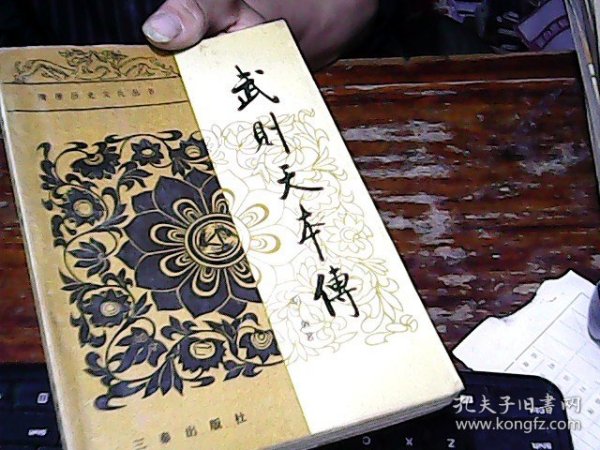 隋唐历史文化丛书
武則天本傳
著
三秦出版社
孔夫子旧書网
www.kongfz.com